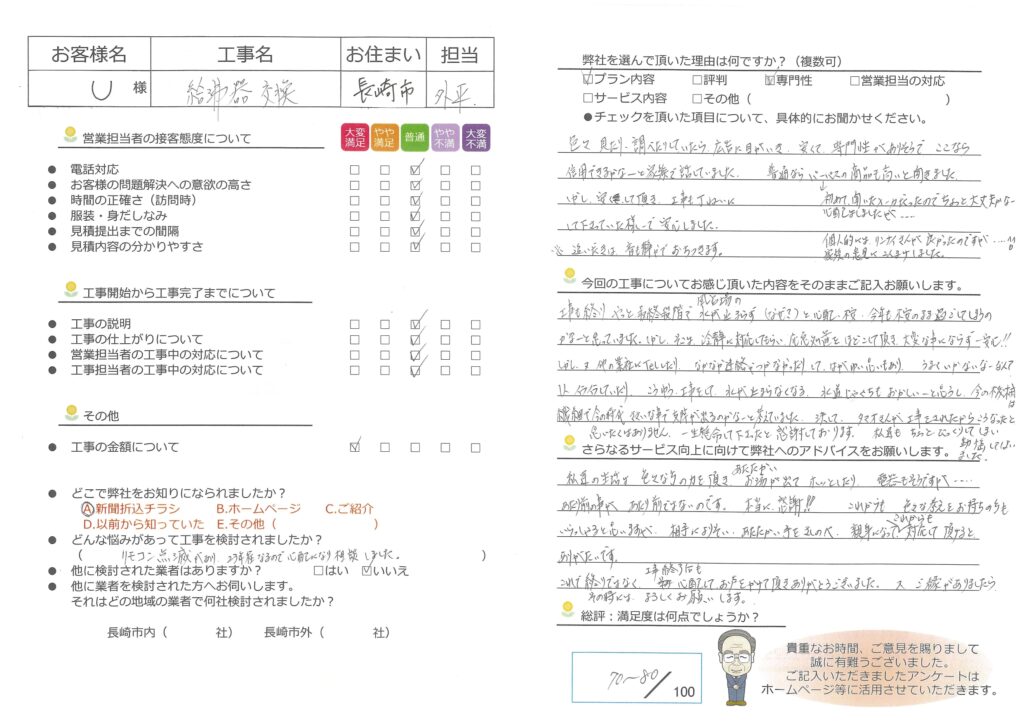 お客様名 工事名 お住まい 担当
U 様 給沸器 交換 長崎市 外平
営業担当者の接客態度について
大変満足 やや満足 普通 やや不満 大変不満
● 電話対応 □ □ ☑ □ □
● お客様の問題解決への意欲の高さ □ □ ☑ □ □
● 時間の正確さ（訪問時） □ □ ☑ □ □
● 服装・身だしなみ □ □ ☑ □ □
● 見積提出までの間隔 □ □ ☑ □ □
● 見積内容の分かりやすさ □ □ ☑ □ □
工事開始から工事完了までについて
● 工事の説明 □ □ ☑ □ □
● 工事の仕上がりについて □ □ ☑ □ □
● 営業担当者の工事中の対応について □ □ ☑ □ □
● 工事担当者の工事中の対応について □ □ ☑ □ □
その他
● 工事の金額について ☑ □ □ □ □
● どこで弊社をお知りになられましたか？
A.新聞折込チラシ B.ホームページ C.ご紹介
D.以前から知っていた E.その他（ ）
● どんな悩みがあって工事を検討されましたか？
（ リモコン点滅があり、23年程なるので心配になり相談しました。 ）
● 他に検討された業者はありますか？ □はい ☑いいえ
● 他に業者を検討された方へお伺いします。
それはどの地域の業者で何社検討されましたか？
長崎市内（ 社） 長崎市外（ 社）
弊社を選んで頂いた理由は何ですか？（複数可）
☑プラン内容 □評判 ☑専門性 □営業担当の対応
□サービス内容 □その他（ ）
●チェックを頂いた項目について、具体的にお聞かせください。
色々見たり、調べたりしていたら、広告に目がいき、安くて、専門性がありそうで ここなら
信用できるかなーと家族で話していました。 普通なら パーパスの商品も高いと聞きました。
しかし、安くして頂き、工事も丁ねいに
初めて聞いたメーカーだったのでちょっと大丈夫かな
心配しましたが....
して下さっていた様子で安心しました。
個人的には リンナイさんが良かったのですが....
家族の意見にこんまけしました。
※ 追い焚きは、音も静かで おちつきます。
今回の工事についてお感じ頂いた内容をそのままご記入お願いします。
工事も終り やっと 最終段階で 風呂場の水が止まらず（なぜ？）と 心配、不安、今年も不安のまま過ごしてしまうの
かなーと思っていました。しかし、そこは、冷静に対応してもらい、応急処置をほどこして頂き、大変な事にならず一安心!!
しかし、又 他の業社に依したり、なかなか連絡がつかなかったりして、はがゆい思いもあり、うまくいかないなーなんて
1人行ったり。こうゆう工事をして、水が止まらなくなる、水道じゃぐちもおかしいーと思うし、今の機械は
繊細で今の時代
と考えていました。決して、タマオさんが工事をされたからこうなったと
思いたくはありません。一生懸命して下さったと感謝しております。 私達も ちょっとびっくりしてしまい
動揺してしまいました。
さらなるサービス向上に向けて弊社へのアドバイスをお願いします。
私達の生活は 色々な方の力を頂き あたたかいお湯が出て ホッとしたり、電気もそうですし....
あたり前の事が、あたり前ではないのです。本当に感謝!! これからも 色々な考えをお持ちの方も
いらっしゃると思いますが、相手によりそい、あたたかい手をさしのべ、これからも親身になって対応して頂けると
ありがたいです。
これで終りではなく、工事終了后も 心配して、お声をかけて頂きありがとうございました。又 ご縁がありましたら
その時には よろしくお願いします。
総評：満足度は何点でしょうか？
70～80／100
貴重なお時間、ご意見を賜りまして
誠に有難うございました。
ご記入いただきましたアンケートは
ホームページ等に活用させていただきます。